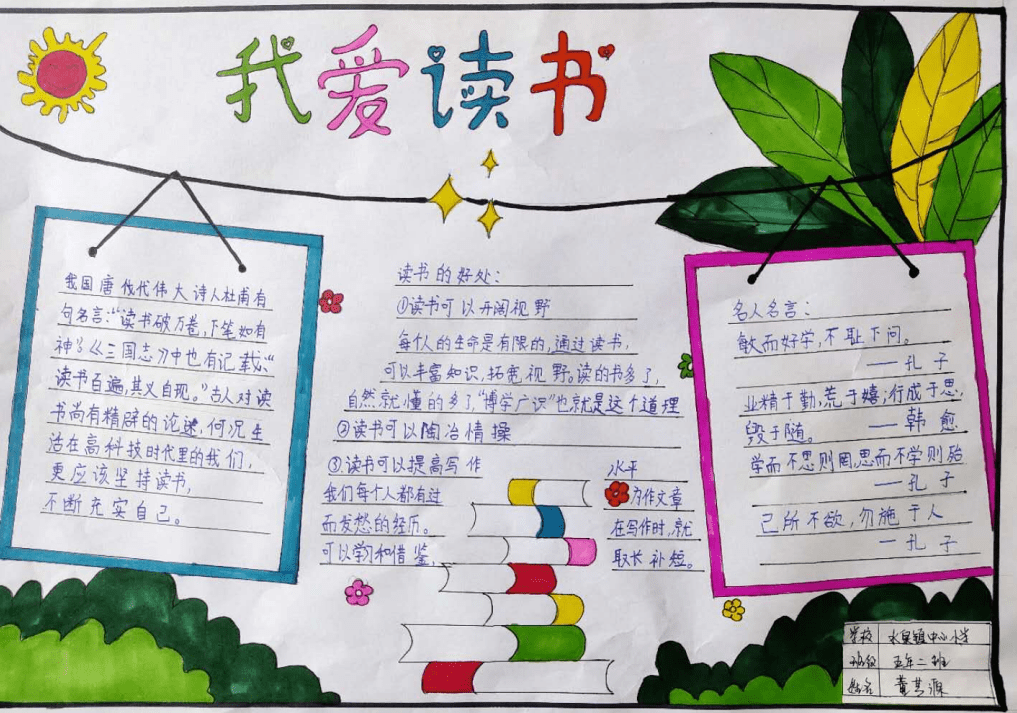 我爱读书
我国唐伐代伟大诗人杜甫有
句名言:“读书破万卷,下笔如有
神”《三国志》中也有记载:“
读书百遍,其义自现。”古人对读
书尚有精辟的论述,何况生
活在高科技时代里的我们,
更应该坚持读书,
不断充实自己。
读书的好处:
①读书可以开阔视野
每个人的生命是有限的,通过读书,
可以丰富知识,拓宽视野。读的书多了,
自然就懂的多了,“博学广识”也就是这个道理
②读书可以陶冶情操
③读书可以提高写作 水平
我们每个人都有过 为作文章
而发愁的经历。 在写作时,就
可以学习和借鉴, 取长补短。
名人名言:
敏而好学,不耻下问。
——孔子
业精于勤,荒于嬉;行成于思,
毁于随。 ——韩愈
学而不思则罔,思而不学则殆
——孔子
己所不欲,勿施于人
—孔子
学校 水泉镇中心小学
班级 五年二班
姓名 董其源